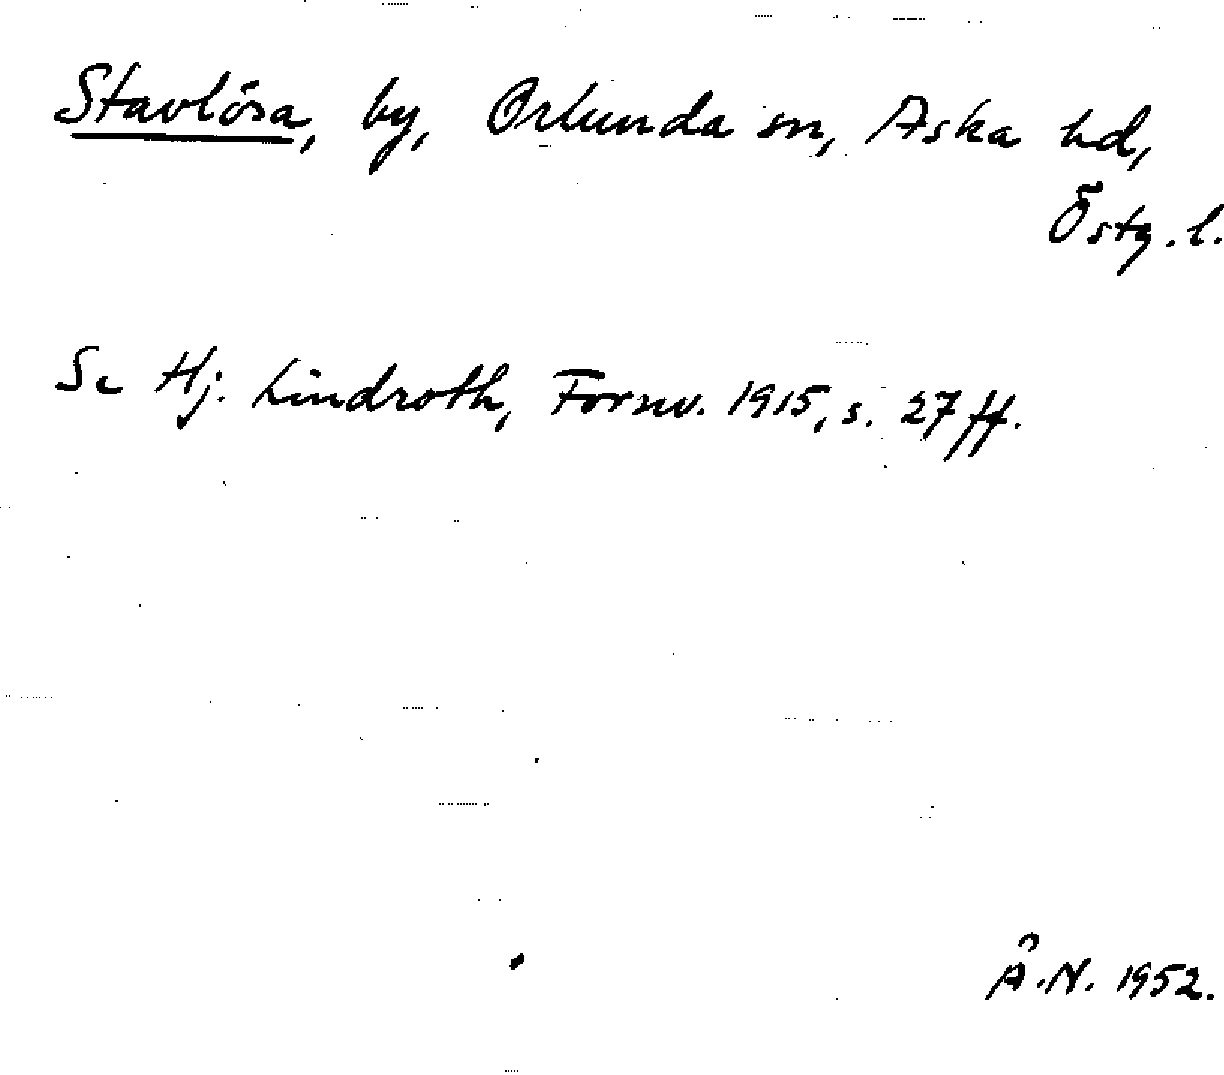 Stavlösa, by, Orlunda sn, Aska hd,
Östg. l.
Se Hj. Lindroth, Fornv. 1915, s. 27 ff.
Å.N. 1952.